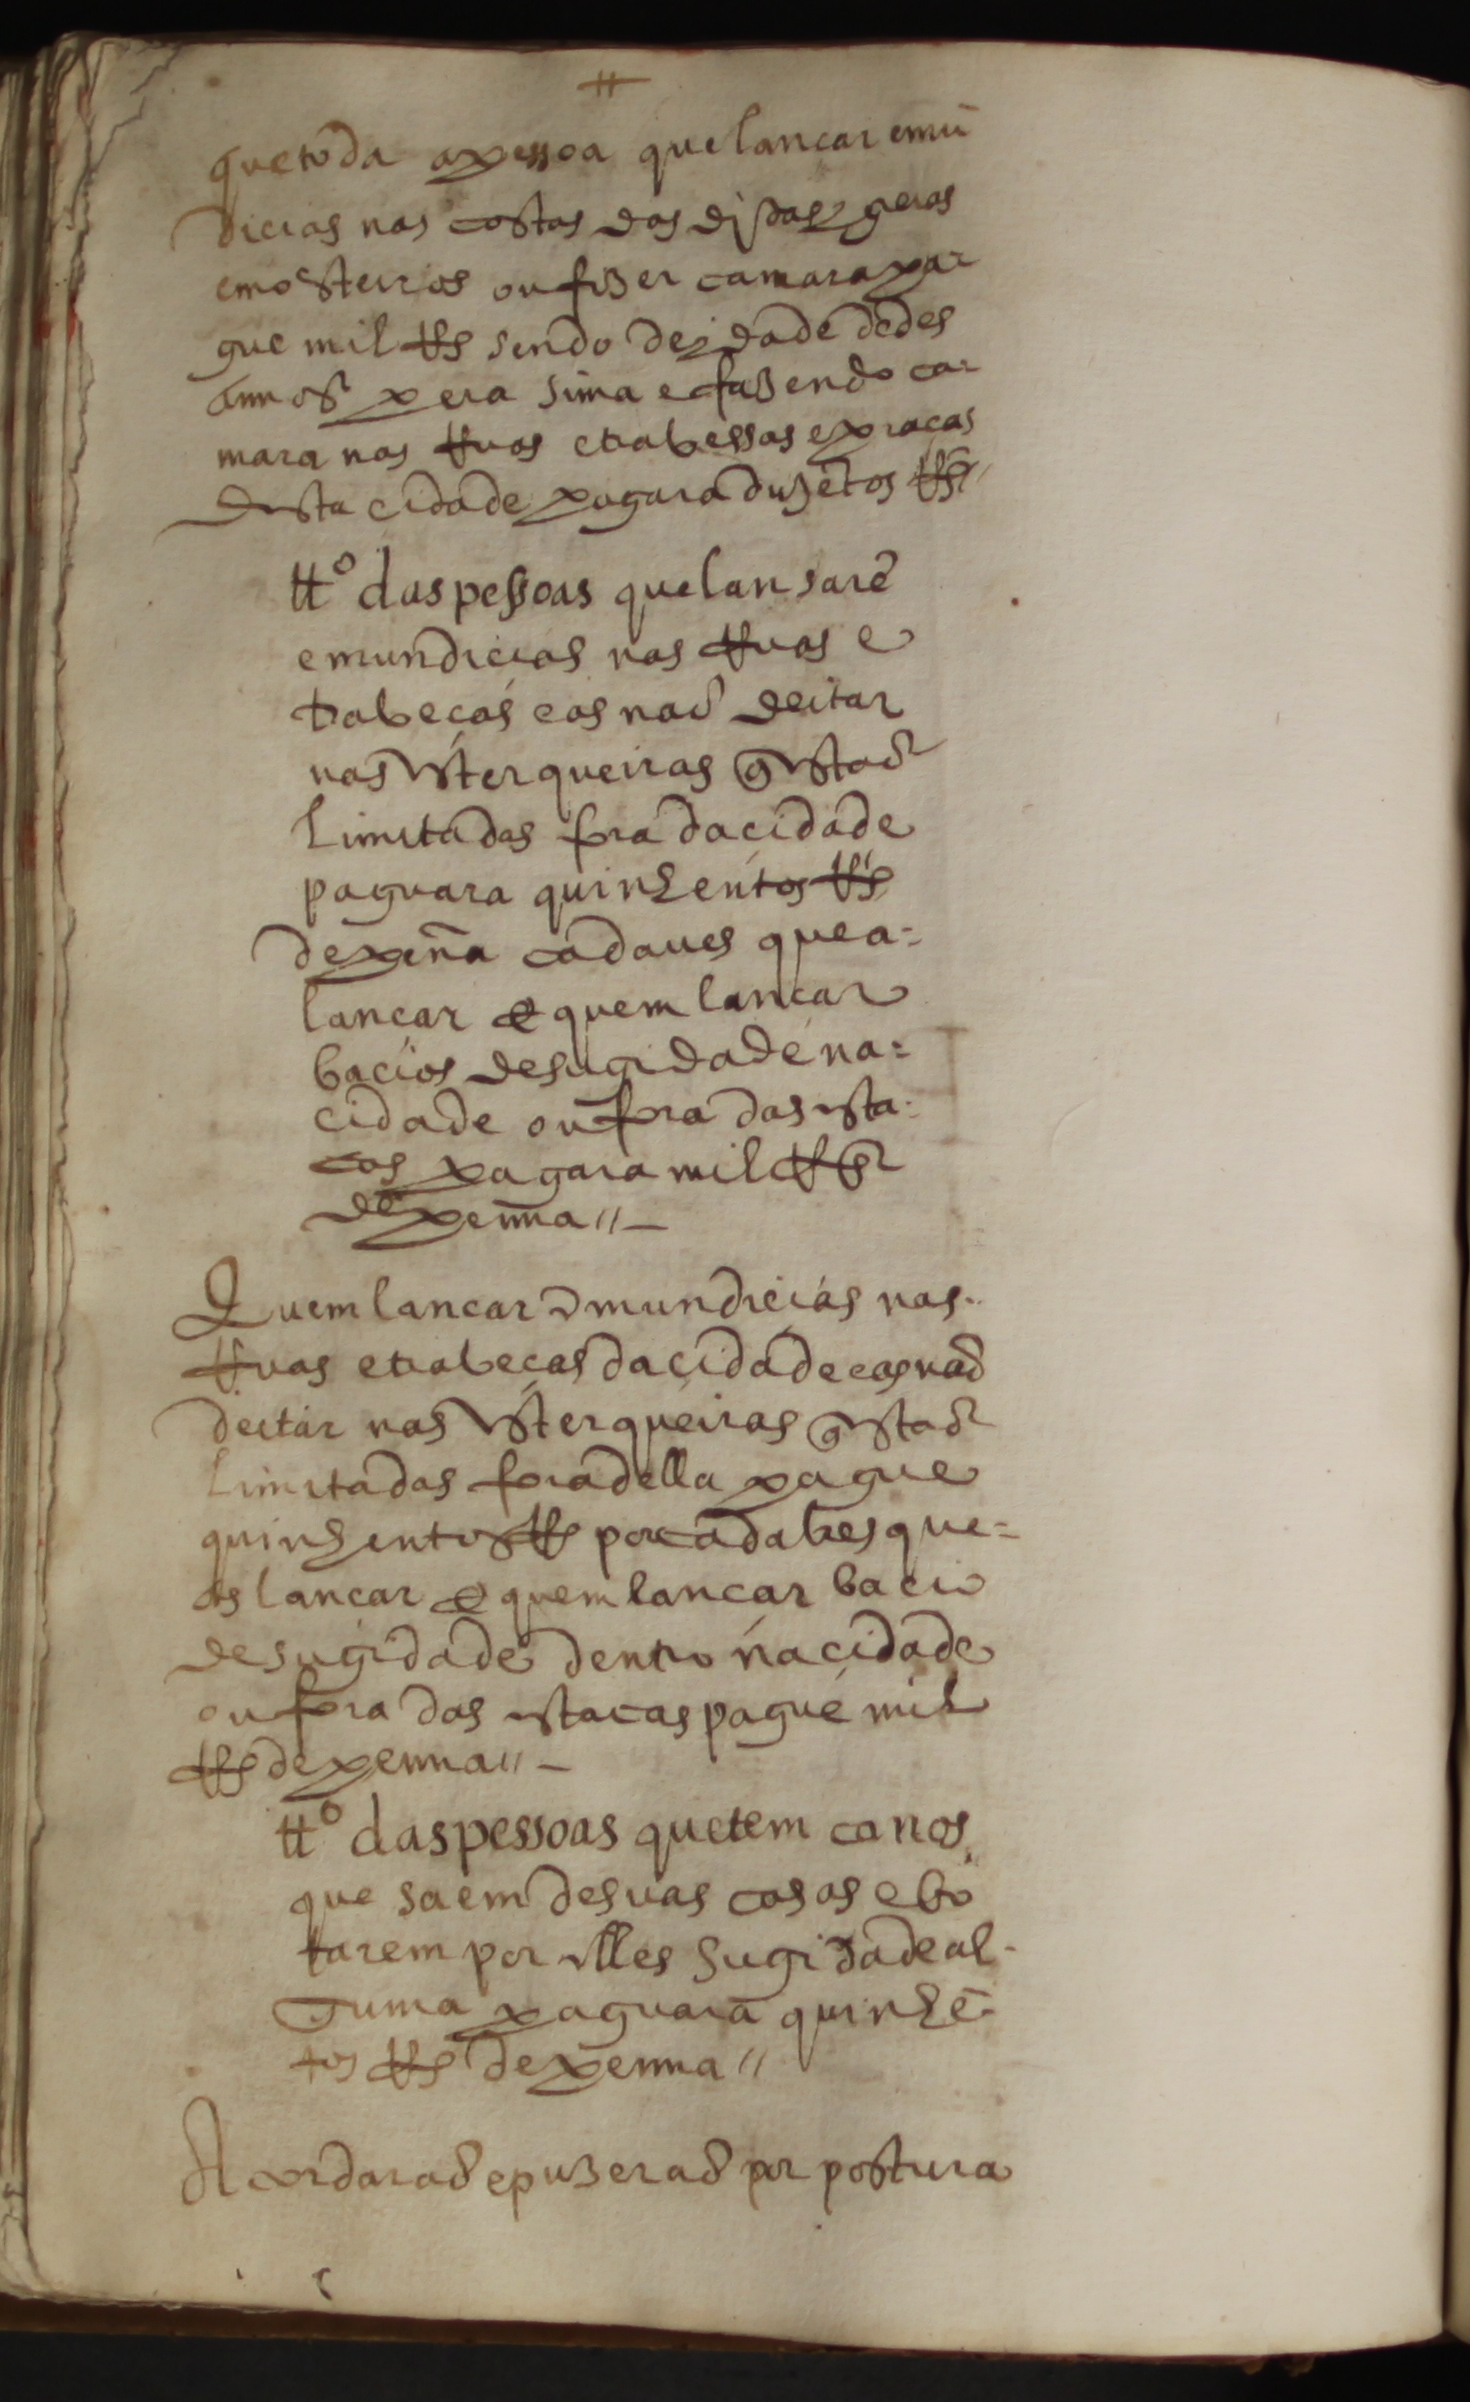 que toda a pessoa que lancar emũ
dicias nas costas das ditas Igeras
e mosteiros ou fizer camara pa-
gue mil rs sendo de idade de des
annos pera sima e fazendo ca-
mara nas Ruas e trabessas e pracas
desta cidade pagara duzẽtos rs //
tt.º das pessoas que lansarẽ
emundicias nas Ruas e
trabeças e as naõ deitar
nas esterqueiras q̃ estaõ
limitadas fora da cidade
paguara quinhentos rs
de pena cada ues que a-
lancar e quem lancar
bacios de sugidade na-
cidade ou fora das esta-
cas pagara mil rs
de penna // —
Quem lancar emundicias nas
Ruas e trabeças da cidade e as naõ
deitar nas esterqueiras q̃ estaõ
limitadas fora della pague
quinhentos rs por cada bes que-
as lancar e quem lancar bacio
de sugidade dentro na cidade
ou fora das estacas pague mil
rs de penna // —
tt.º das pessoas que tem canos
que saem de suas casas e bo
tarem por elles sugidade al-
guma paguara quinhẽ-
tos rs de penna //
Acordaraõ e puzeraõ por postura